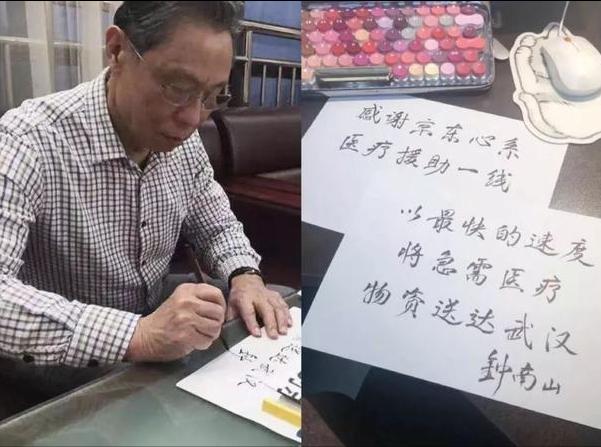 感谢京东心系
医疗援助一线
以最快的速度
将急需医疗
物资送达武汉
钟南山